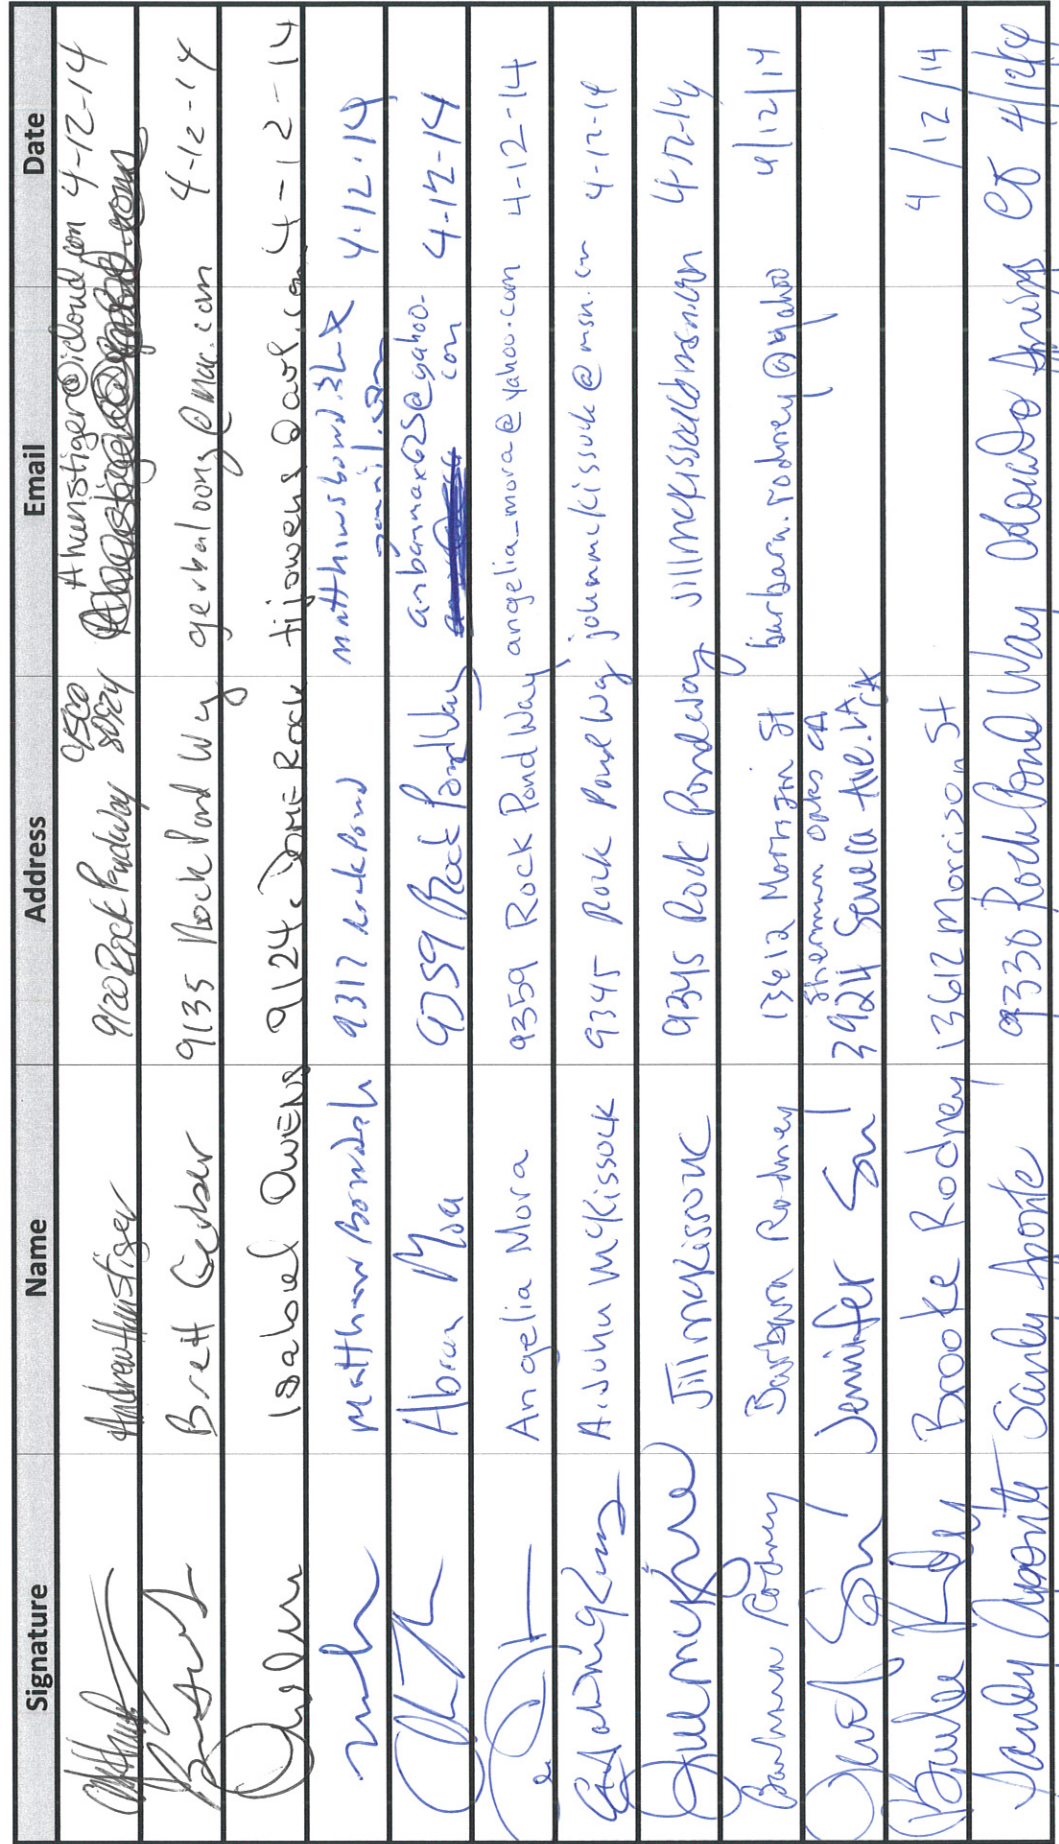 Signature Name Address Email Date
Andrew Hunstiger 9120 Rock Pondway 80524 thunstiger@icloud.com 4-12-14
Brett Gerber 9135 Rock Pond Wy gerbaloong@mac.com 4-12-14
Isabel Owens 9124 Dome Rock tijowens@aol.com 4-12-14
9317 Rock Pond 4.12.14
Abran Mora 9359 Rock Pond Way anbanmax625@yahoo.com 4-12-14
Angelia Mora 9359 Rock Pond Way angelia_mora@yahoo.com 4-12-14
A. John McKissock 9345 Rock Pond Wy johnmckissock@msn.com 4-12-14
Jill McKissock 9345 Rock Pondway jillmckissock@msn.com 4-12-14
Barbara Rodney Barbara Rodney 13612 Morrison St barbara.rodney@yahoo 4/12/14
Sherman Oaks CA
Jennifer 3924 Seneca Ave. LA, CA
Brooke Rodney 13612 Morrison St 4/12/14
Sandy Aponte Sandy Aponte 9330 Rock Pond Way Colorado Springs CO 4/12/14